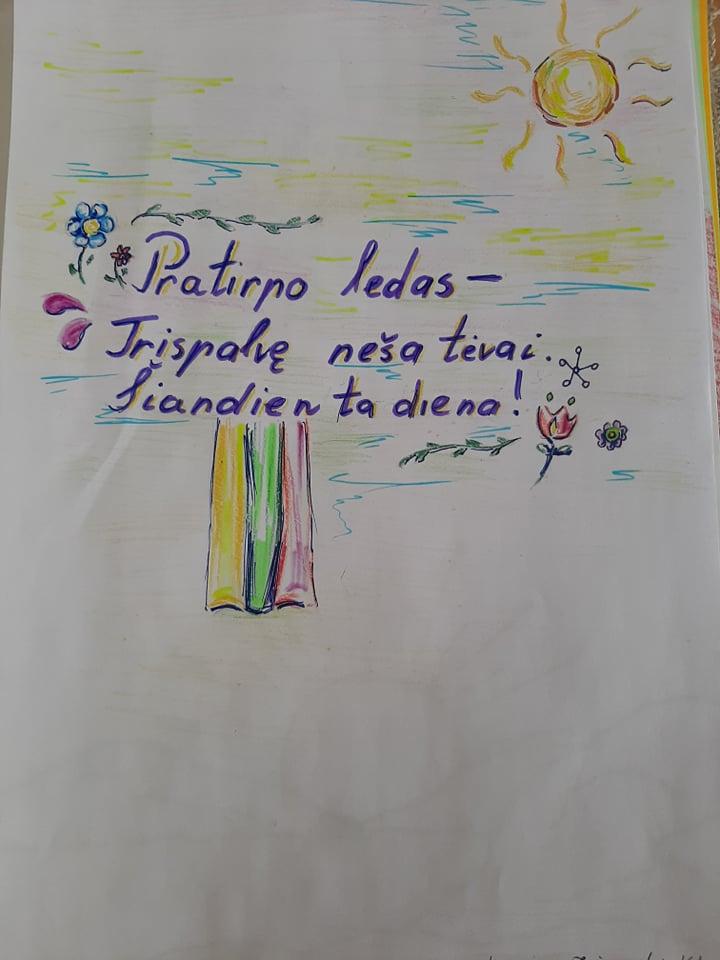 Pratirpo ledas –
Trispalvę neša tėvai.
Šiandien ta diena!